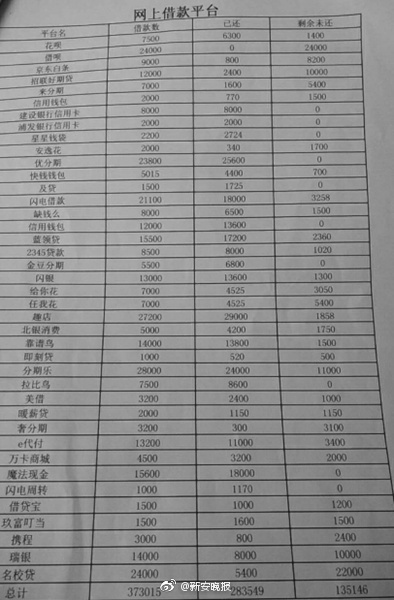 网上借款平台
平台名 借款数 已还 剩余未还
花呗 7500 6300 1400
借呗 24000 0 24000
京东白条 9000 800 8200
招联好期贷 12000 2400 10000
来分期 7000 1600 5400
信用钱包 2000 770 1500
建设银行信用卡 8000 8000 0
浦发银行信用卡 2000 2000 0
星星钱袋 2200 2724 0
安逸花 2000 340 1700
优分期 23800 25600 0
快钱钱包 5015 4400 700
及贷 1500 1725 0
闪电借款 21100 18000 3258
缺钱么 8000 6500 1500
信用钱包 12000 13600 0
蓝领贷 15500 17200 2360
2345贷款 8500 8000 1020
金豆分期 5500 6800 0
闪银 13000 13600 1300
给你花 7000 4525 3050
任我花 7000 4525 5400
趣店 27200 29000 1858
北银消费 5000 4200 1750
靠谱鸟 14000 13800 1500
即刻贷 1000 520 500
分期乐 28000 24000 11000
拉比鸟 7500 8600 0
美借 3200 2400 1000
暖薪贷 2000 1150 1150
奢分期 3200 300 3100
e代付 13200 11000 3400
万卡商城 4500 3200 2000
魔法现金 15600 18000 0
闪电周转 1000 1170 0
借贷宝 1500 1000 1200
玖富叮当 1500 1600 1500
携程 3000 800 2400
瑞银 14000 8000 10000
名校贷 24000 5400 22000
总计 373015 283549 135146
@新安晚报